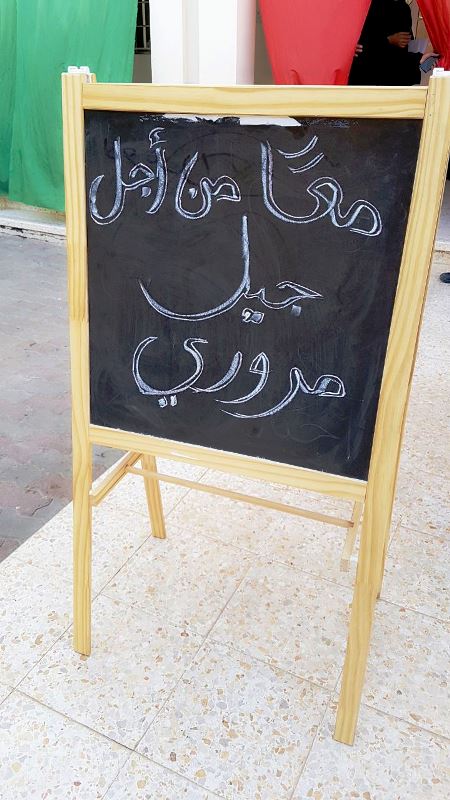 معًا من أجل
جيل
مروري